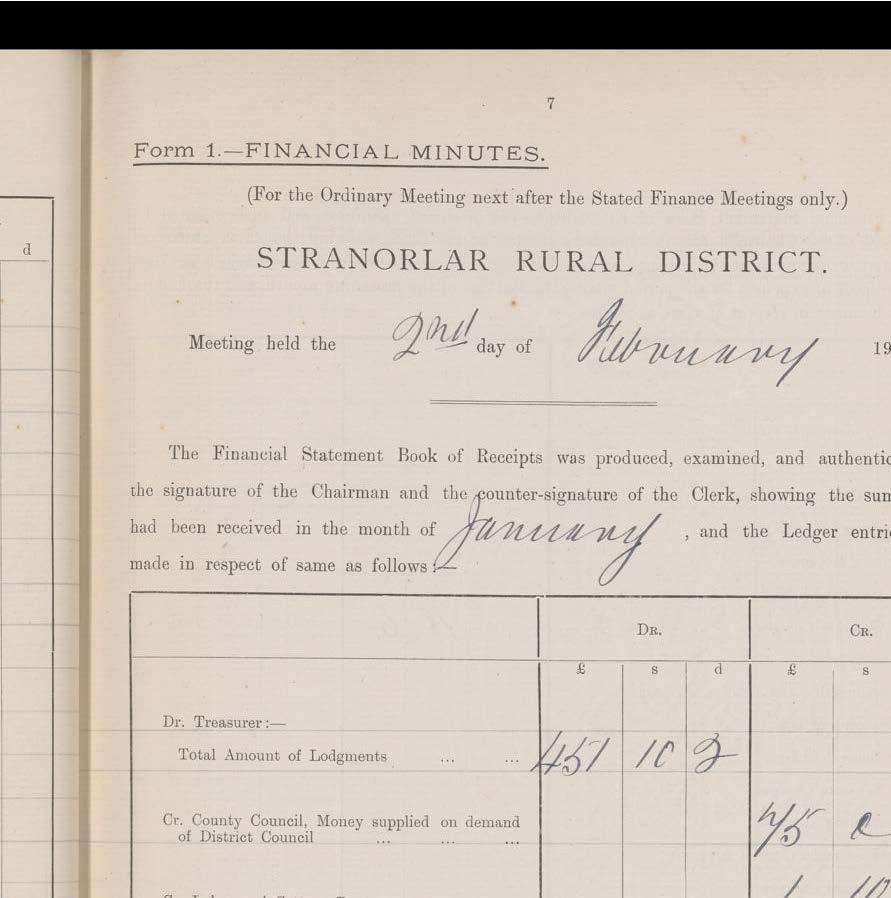 7
Form 1.—FINANCIAL MINUTES.
(For the Ordinary Meeting next after the Stated Finance Meetings only.)
d
STRANORLAR RURAL DISTRICT.
Meeting held the 2nd day of February 19
The Financial Statement Book of Receipts was produced, examined, and authentic
the signature of the Chairman and the counter-signature of the Clerk, showing the sum
had been received in the month of January, and the Ledger entri
made in respect of same as follows:—
Dr. Cr.
£ s d £ s
Dr. Treasurer:—
Total Amount of Lodgments ... ... 451 10 2
Cr. County Council, Money supplied on demand 75 0
of District Council ... ... ...
1 10